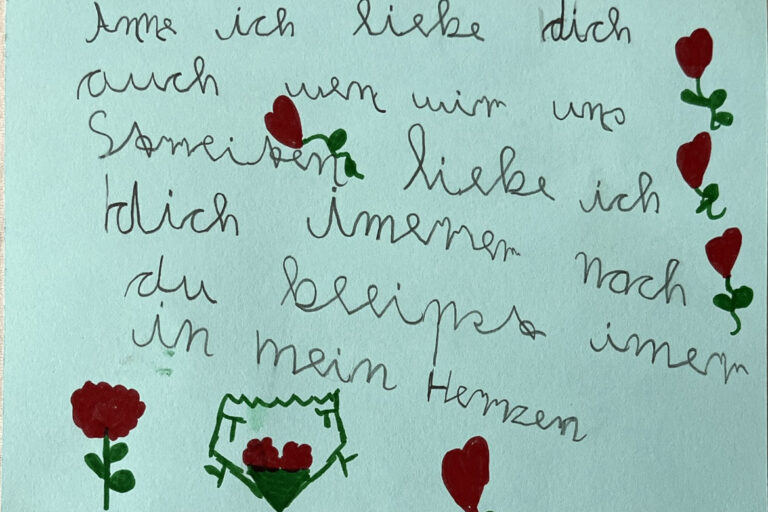 Anne ich liebe dich
auch wen wir uns
Streiten liebe ich
dich imerer noch
du bleipst imer
in mein Herzen